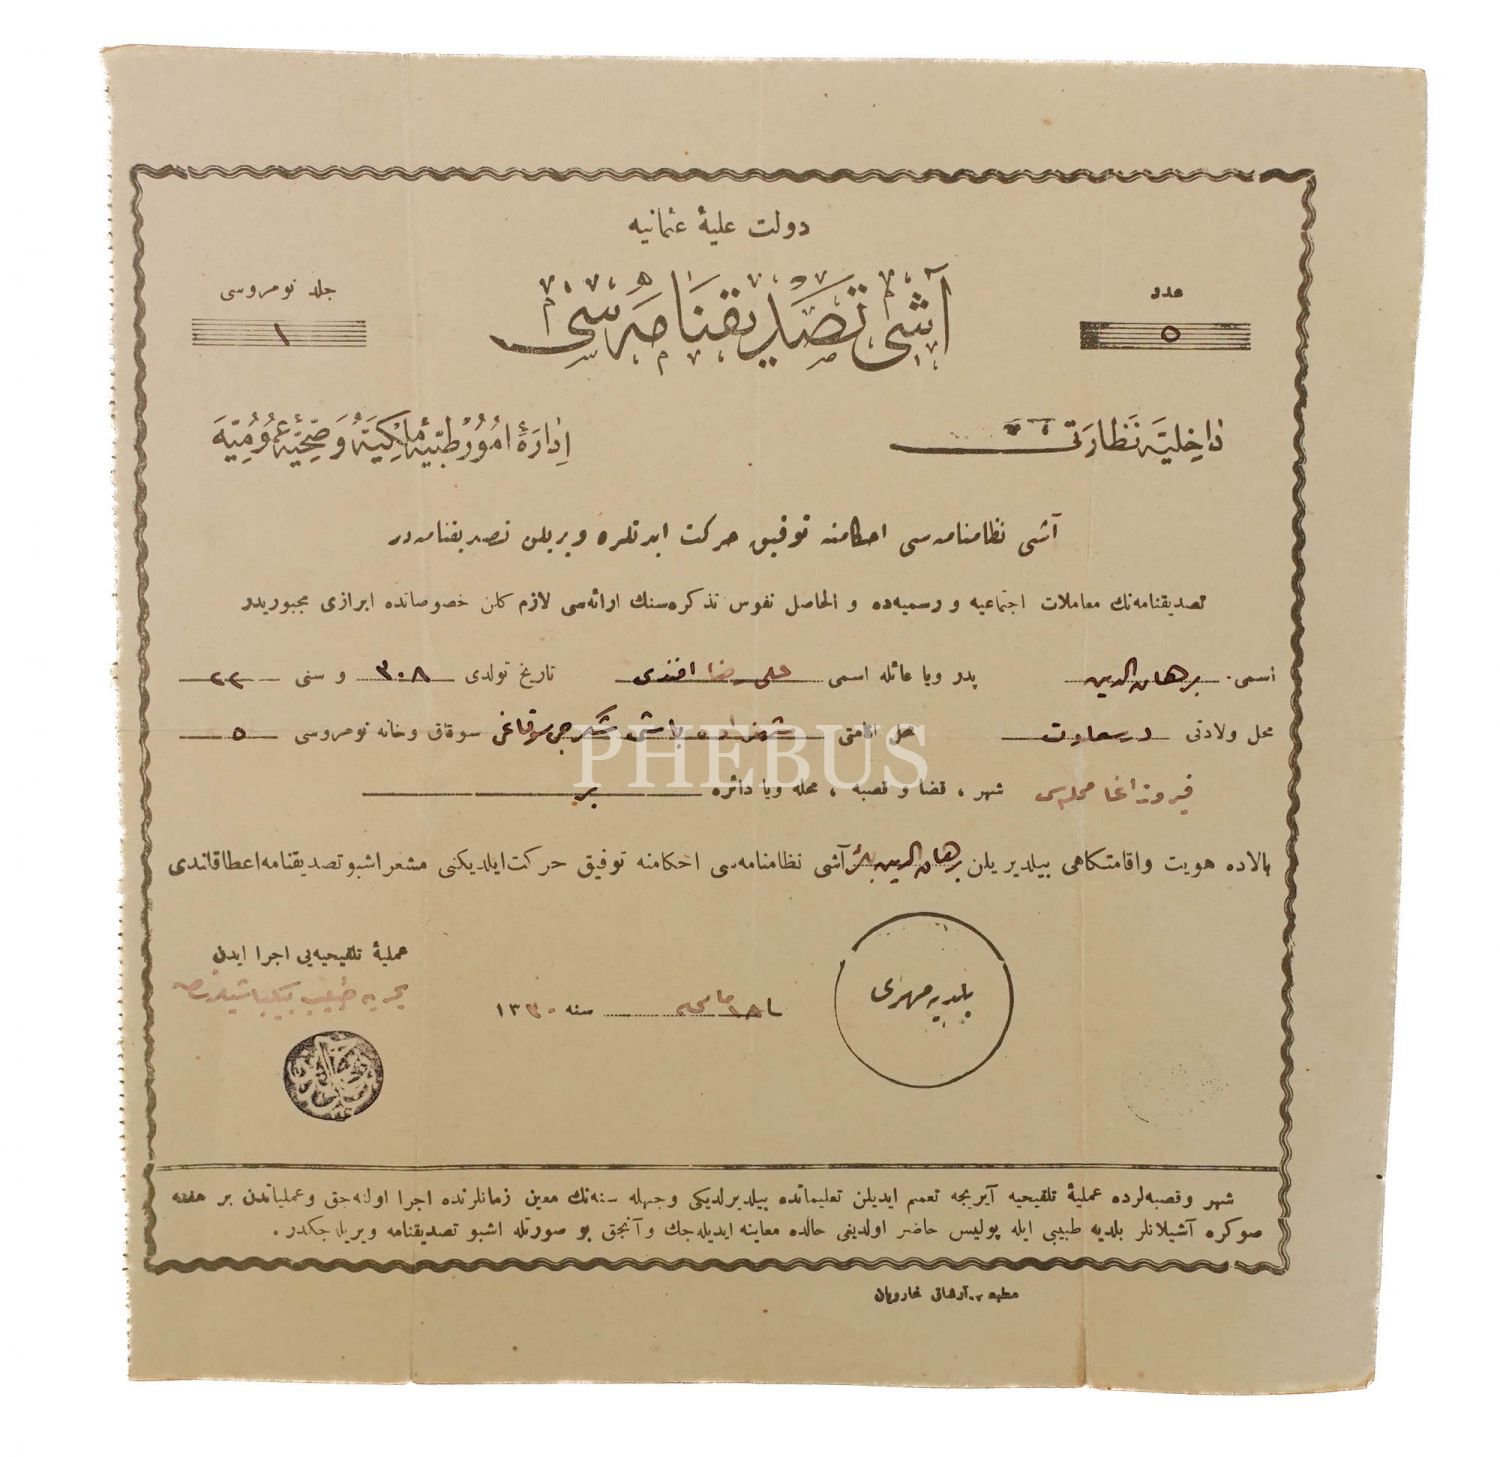 دولت علیهٔ عثمانیه
عدد
۵
آشی تصدیقنامه‌سی
جلد نومروسی
۱
داخلیه نظارتی
ادارهٔ امور طبیهٔ ملکیه و صحیهٔ عمومیه
آشی نظامنامه‌سی احکامنه توفیق حرکت ایدنلره ویریلن تصدیقنامه‌در
تصدیقنامه‌نك معاملات اجتماعیه و رسمیه‌ده و الحاصل نفوس تذکره‌سنك ارائه‌سی لازم کلن خصوصاتده ابرازی مجبوریدر
اسمی برهان الدین پدر ویا عائله اسمی علی رضا افندی تاریخ تولدی ۳۰۸ و سنی ۲۲
محل ولادتی درسعادت محل اقامتی شهزاده باشی شکرجی سوقاغی سوقاق وخانه نومروسی ۵
فیروز اغا محله‌سی شهر ، قضا و قصبه ، محله ویا دائره
بالاده هویت واقامتکاهی بیلدیریلن برهان الدین آشی نظامنامه‌سی احکامنه توفیق حرکت ایلدیکنی مشعر اشبو تصدیقنامه اعطا قلندی
عملیهٔ تلقیحیه‌یی اجرا ایدن
بحریه طبیب بیکباشیلرندن
بلدیه مهری
۱۸ سنه ۱۳۳۰
شهر وقصبه‌لرده عملیهٔ تلقیحیه آیریجه تعمیم ایدیلن تعلیماتده بیلدیرلدیکی وجهله سنه‌نك معین زمانلرنده اجرا اولنه‌جق وعملیاتدن بر هفته
صوکره آشیلانلر بلدیه طبیبی ایله پولیس حاضر اولدیغی حالده معاینه ایدیله‌جك وآنجق بو صورتله اشبو تصدیقنامه ویریله‌جکدر .
PHEBUS